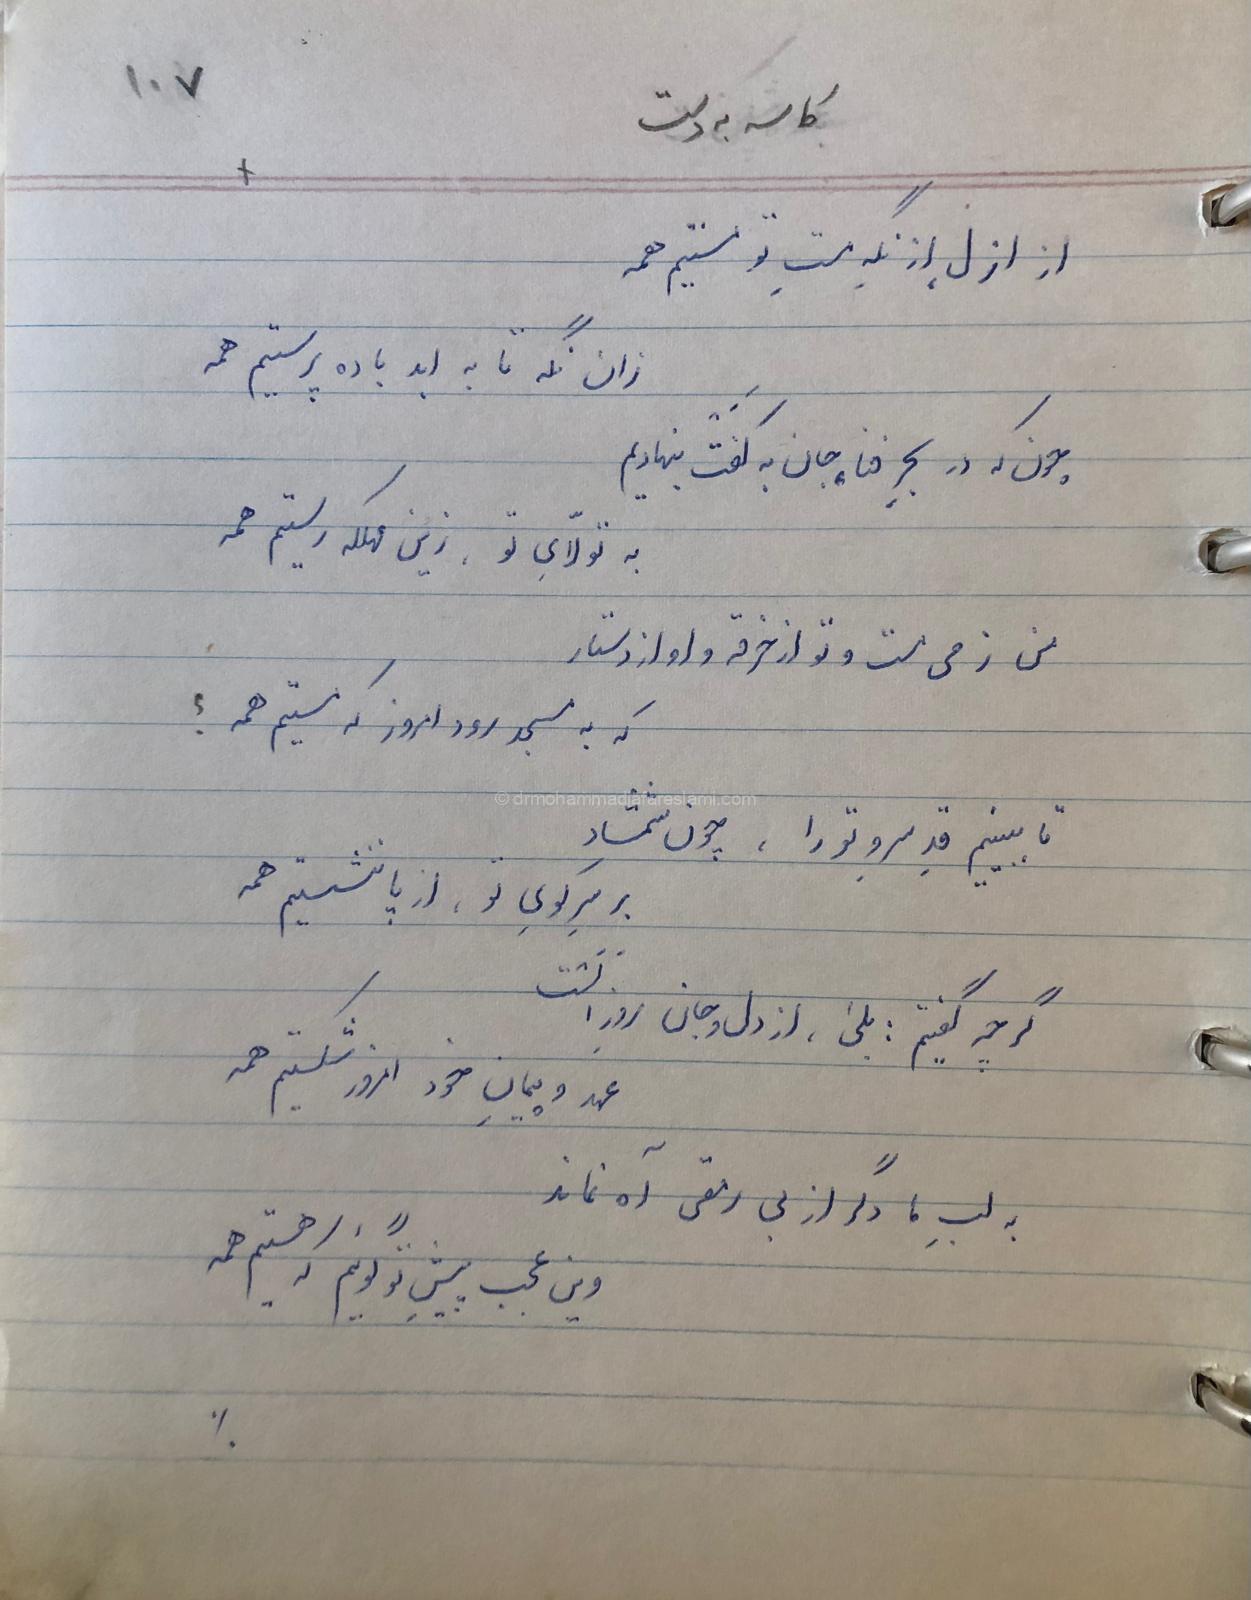 ۱۰۷
کاسه به دست
+
از ازل، از نگهِ مستِ تو مستیم همه
زان نگه تا به ابد باده پرستیم همه
چون که در بحرِ فنا، جان به کَفَت بنهادیم
به تولّایِ تو، زین مهلکه رستیم همه
من ز می مست و تو از خرقه و او از دستار
که به مسجد رود امروز که مستیم همه؟
تا ببینیم قدِ سروِ تو را، چون شمشاد
بر سرِ کویِ تو، از پا ننشستیم همه
© drmohammadjafareslami.com
گرچه گفتیم: بلیٰ، از دل و جان روزِ اَلَست
عهد و پیمانِ خود امروز شکستیم همه
به لبِ ما دگر از بی رمقی آه نماند
وین عجب پیشِ تو گوئیم که هستیم همه
٪